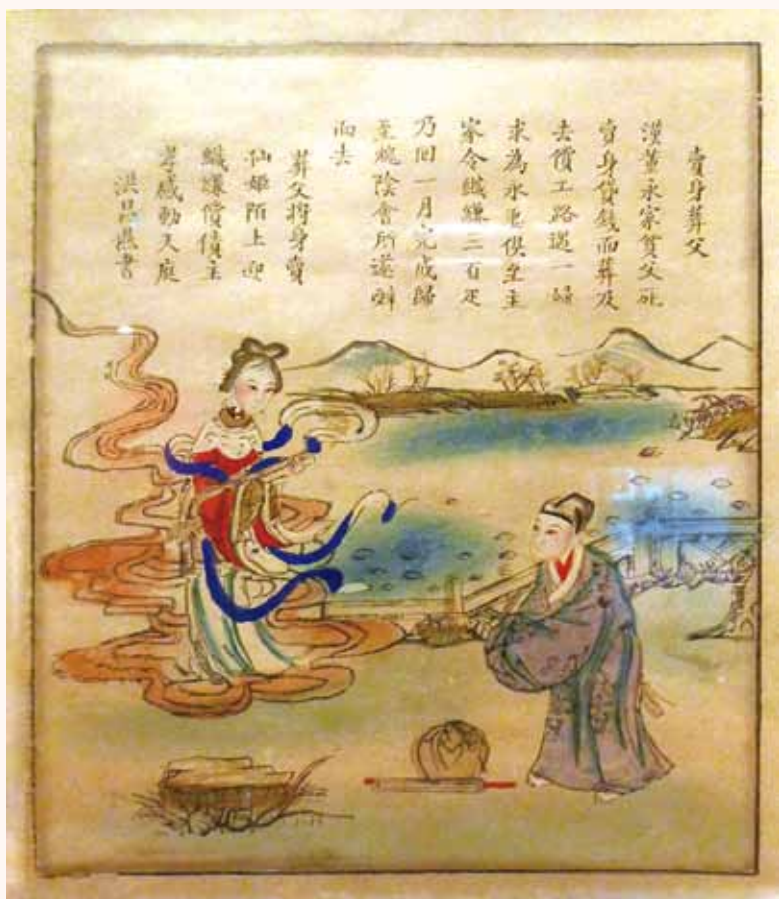 賣身葬父
漢董永家貧父死
賣身貸錢而葬及
去償工路遇一婦
求為永妻俱至主
家令織縑三百疋
乃回一月完成歸
至槐陰會所遂辭
而去
葬父將身賣
仙姬陌上迎
織縑償債主
孝感動天庭
洪昌燕書